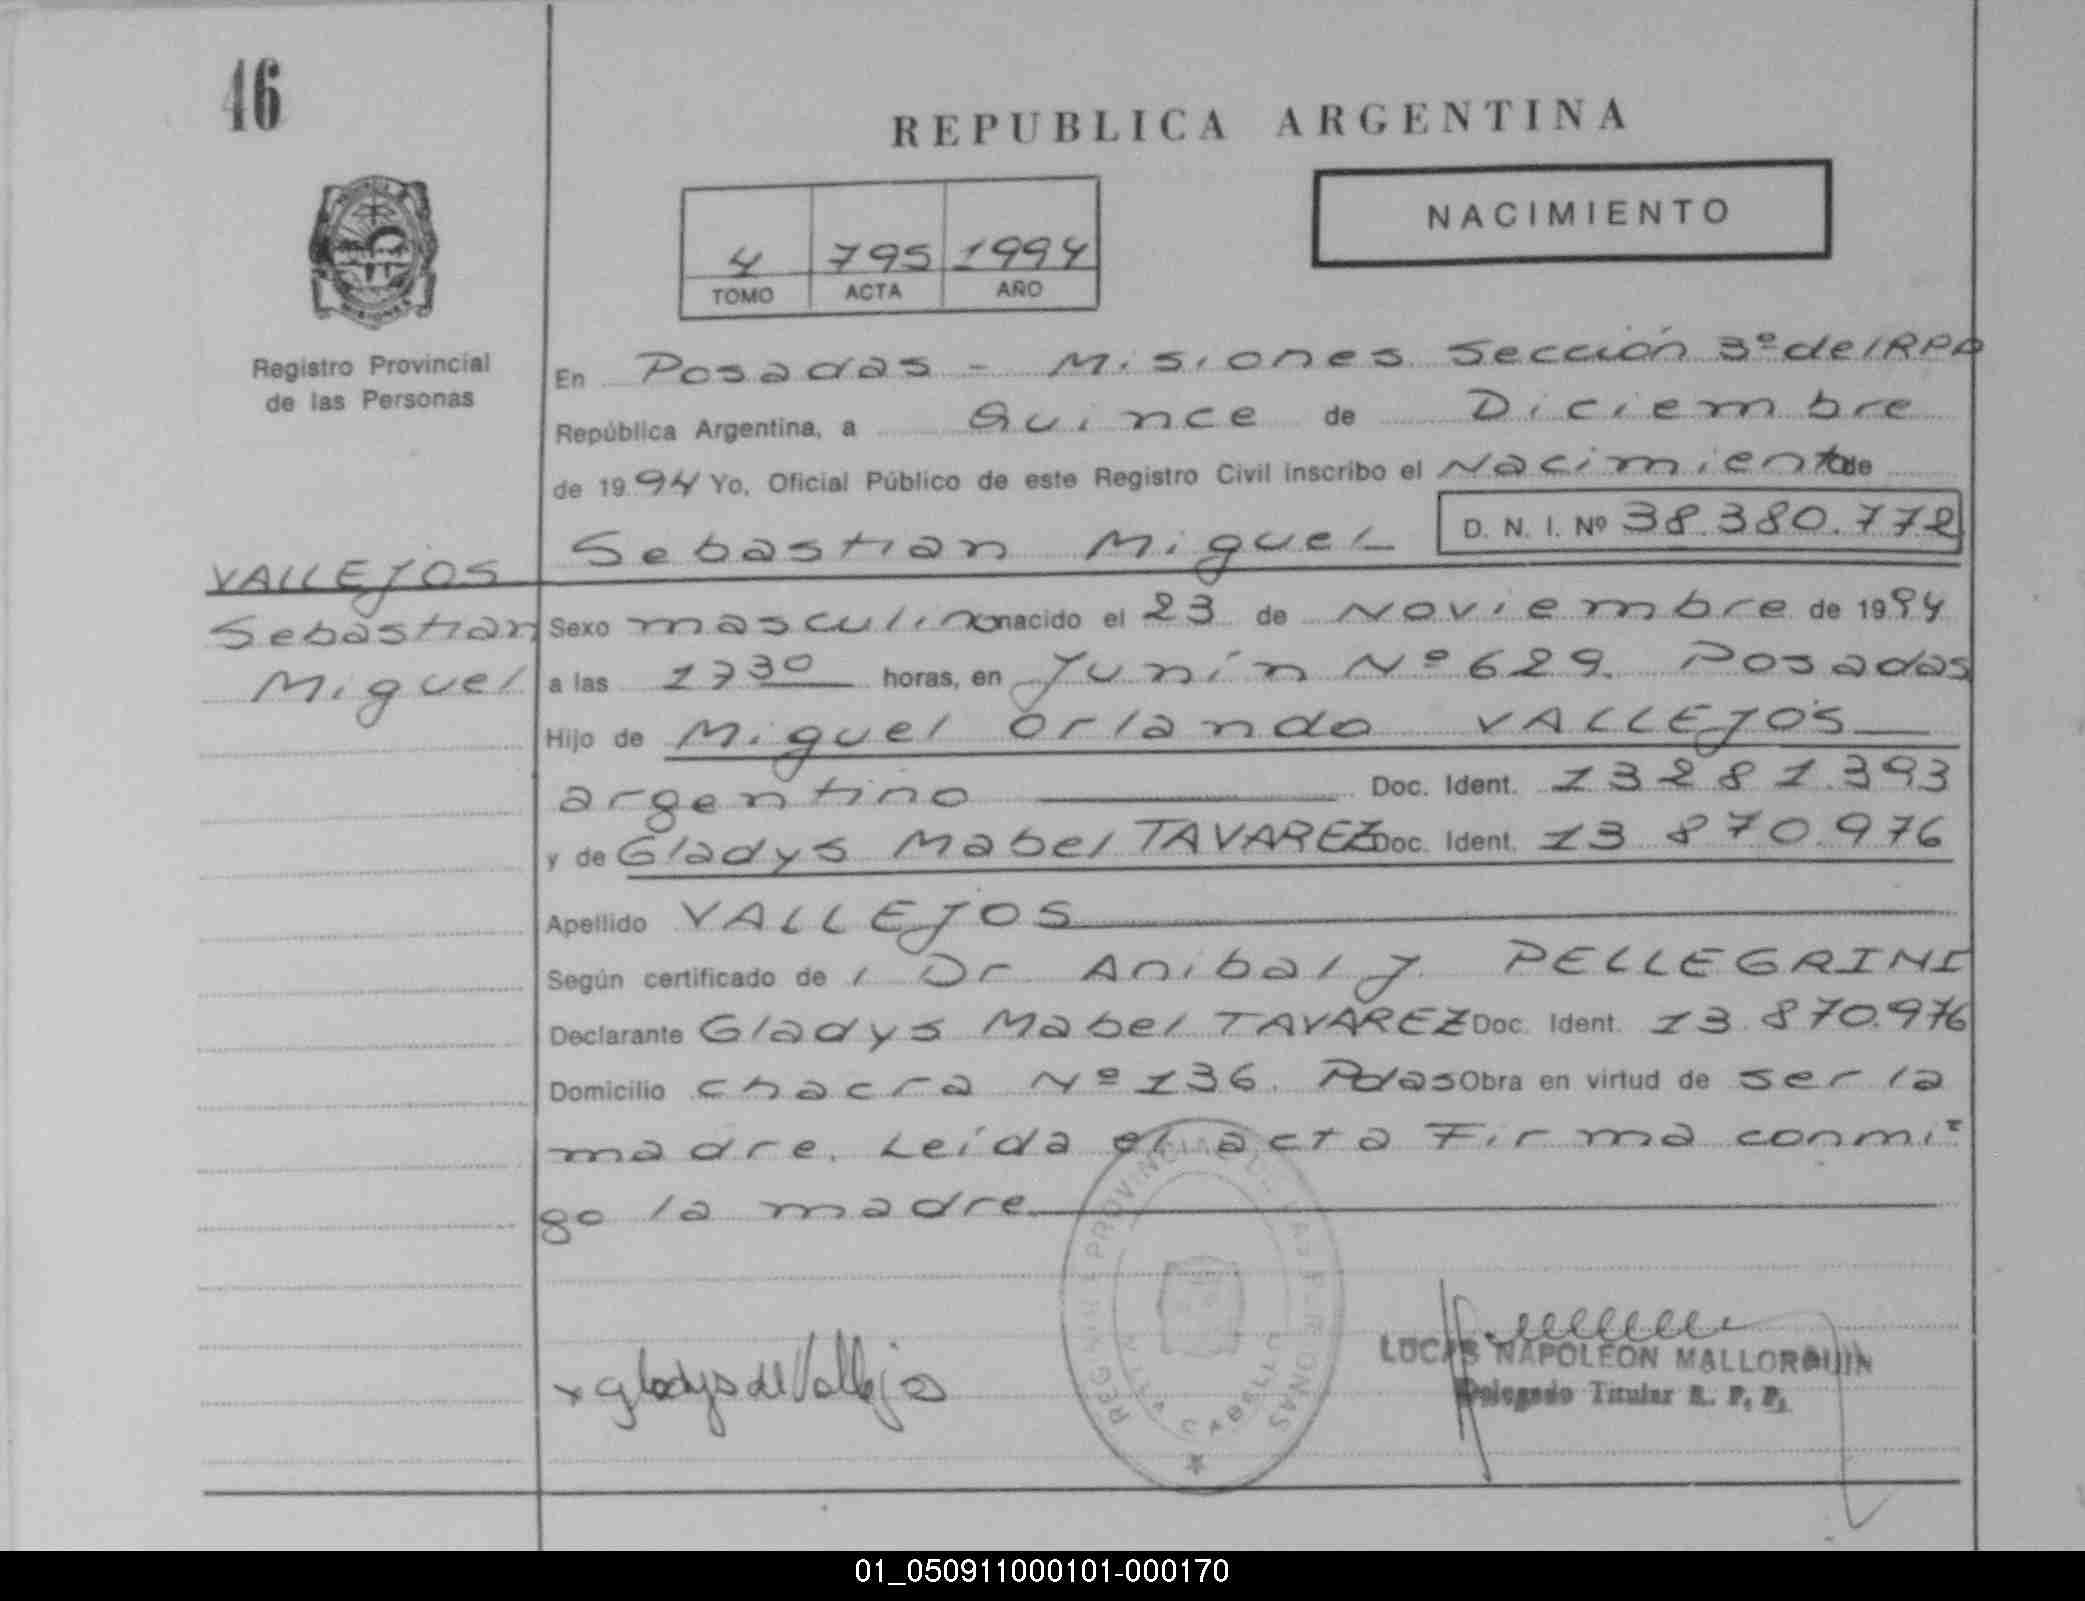 46
REPUBLICA ARGENTINA
NACIMIENTO
4 795 1994
TOMO ACTA AÑO
Registro Provincial
de las Personas
En Posadas - Misiones Sección 3º del RPP
República Argentina, a Quince de Diciembre
de 1994 Yo, Oficial Público de este Registro Civil inscribo el Nacimiento de
Sebastian Miguel D. N. I. Nº 38.380.772
VALLEJOS
Sebastian
Miguel
Sexo masculino nacido el 23 de Noviembre de 1994
a las 1730 horas, en Junín Nº 629. Posadas
Hijo de Miguel Orlando VALLEJOS
argentino Doc. Ident. 13281.393
y de Gladys Mabel TAVAREZ Doc. Ident. 13 870.976
Apellido VALLEJOS
Según certificado de l Dr Anibal J. PELLEGRINI
Declarante Gladys Mabel TAVAREZ Doc. Ident. 13.870.976
Domicilio chacra Nº 136. Pdas Obra en virtud de ser la
madre. Leída el acta Firma conmi-
go la madre
REGISTRO PROVINCIAL DE LAS PERSONAS
VILLA CABELLO
x gladys de Vallejos
LUCAS NAPOLEON MALLORQUIN
Delegado Titular R. P. P.
01_050911000101-000170